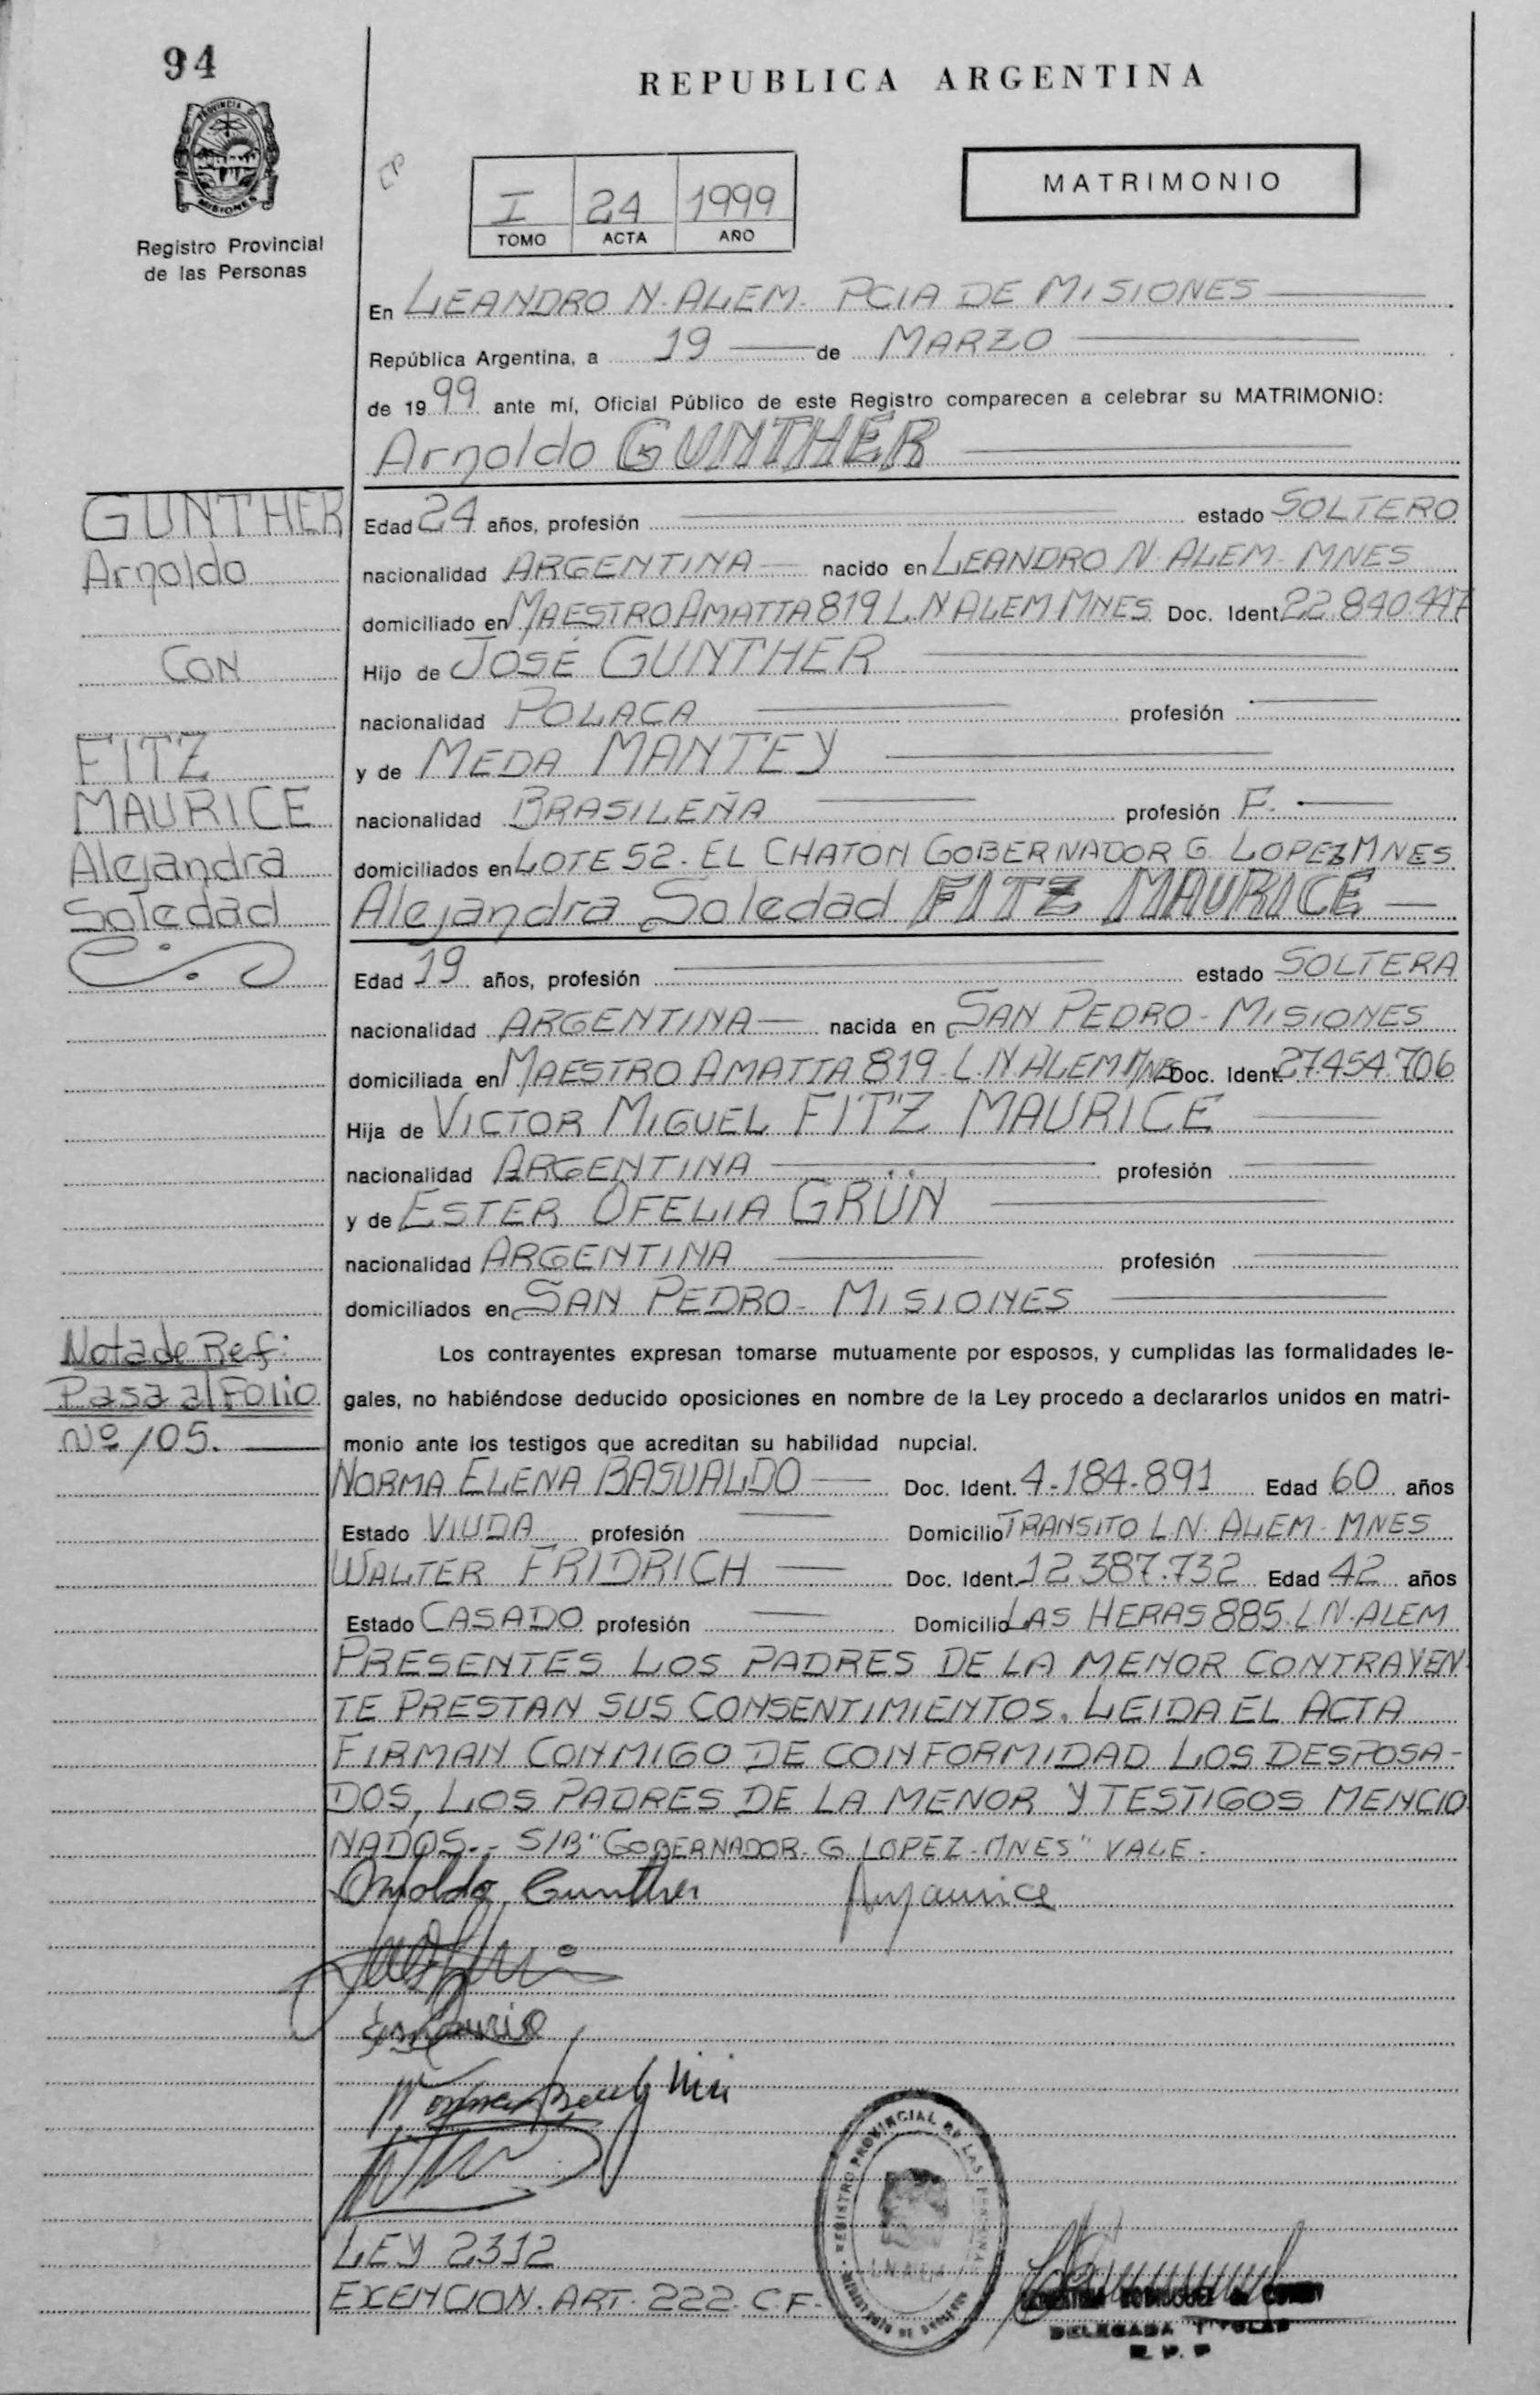 94
REPUBLICA ARGENTINA
PROVINCIA DE
MISIONES
Registro Provincial
de las Personas
I 24 1999
TOMO ACTA AÑO
MATRIMONIO
En LEANDRO N. ALEM- PCIA DE MISIONES
República Argentina, a 19 de MARZO
de 19 99 ante mí, Oficial Público de este Registro comparecen a celebrar su MATRIMONIO:
Arnoldo GUNTHER
GUNTHER
Arnoldo
CON
FITZ
MAURICE
Alejandra
Soledad
Edad 24 años, profesión estado SOLTERO
nacionalidad ARGENTINA nacido en LEANDRO N. ALEM- MNES
domiciliado en MAESTRO AMATTA 819 L.N ALEM MNES Doc. Ident. 22.840.447
Hijo de JOSÉ GUNTHER
nacionalidad POLACA profesión
y de MEDA MANTEY
nacionalidad BRASILEÑA profesión F.
domiciliados en LOTE 52. EL CHATON GOBERNADOR G. LOPEZ MNES
Alejandra Soledad FITZ MAURICE
Edad 19 años, profesión estado SOLTERA
nacionalidad ARGENTINA nacida en SAN PEDRO - MISIONES
domiciliada en MAESTRO AMATTA 819 L.N ALEM MNES Doc. Ident. 27.454.706
Hija de VICTOR MIGUEL FITZ MAURICE
nacionalidad ARGENTINA profesión
y de ESTER OFELIA GRÜN
nacionalidad ARGENTINA profesión
domiciliados en SAN PEDRO- MISIONES
Nota de Ref:
Pasa al Folio
Nº 105.
Los contrayentes expresan tomarse mutuamente por esposos, y cumplidas las formalidades le-
gales, no habiéndose deducido oposiciones en nombre de la Ley procedo a declararlos unidos en matri-
monio ante los testigos que acreditan su habilidad nupcial.
NORMA ELENA BASUALDO Doc. Ident. 4.184.891 Edad 60 años
Estado VIUDA profesión Domicilio TRANSITO L.N. ALEM- MNES
WALTER FRIDRICH Doc. Ident. 12.387.732 Edad 42 años
Estado CASADO profesión Domicilio LAS HERAS 885. L.N. ALEM
PRESENTES LOS PADRES DE LA MENOR CONTRAYEN
TE PRESTAN SUS CONSENTIMIENTOS. LEIDA EL ACTA
FIRMAN CONMIGO DE CONFORMIDAD LOS DESPOSA-
DOS, LOS PADRES DE LA MENOR Y TESTIGOS MENCIO
NADOS.- S/B "GOBERNADOR. G. LOPEZ-MNES" VALE.
Arnoldo Gunther
REGISTRO PROVINCIAL DE LAS PERSONAS
MINISTERIO DE GOBIERNO
L.N. ALEM
LEY 2312
EXENCION. ART. 222. C.F.-
DELEGADA TITULAR
R. P. P